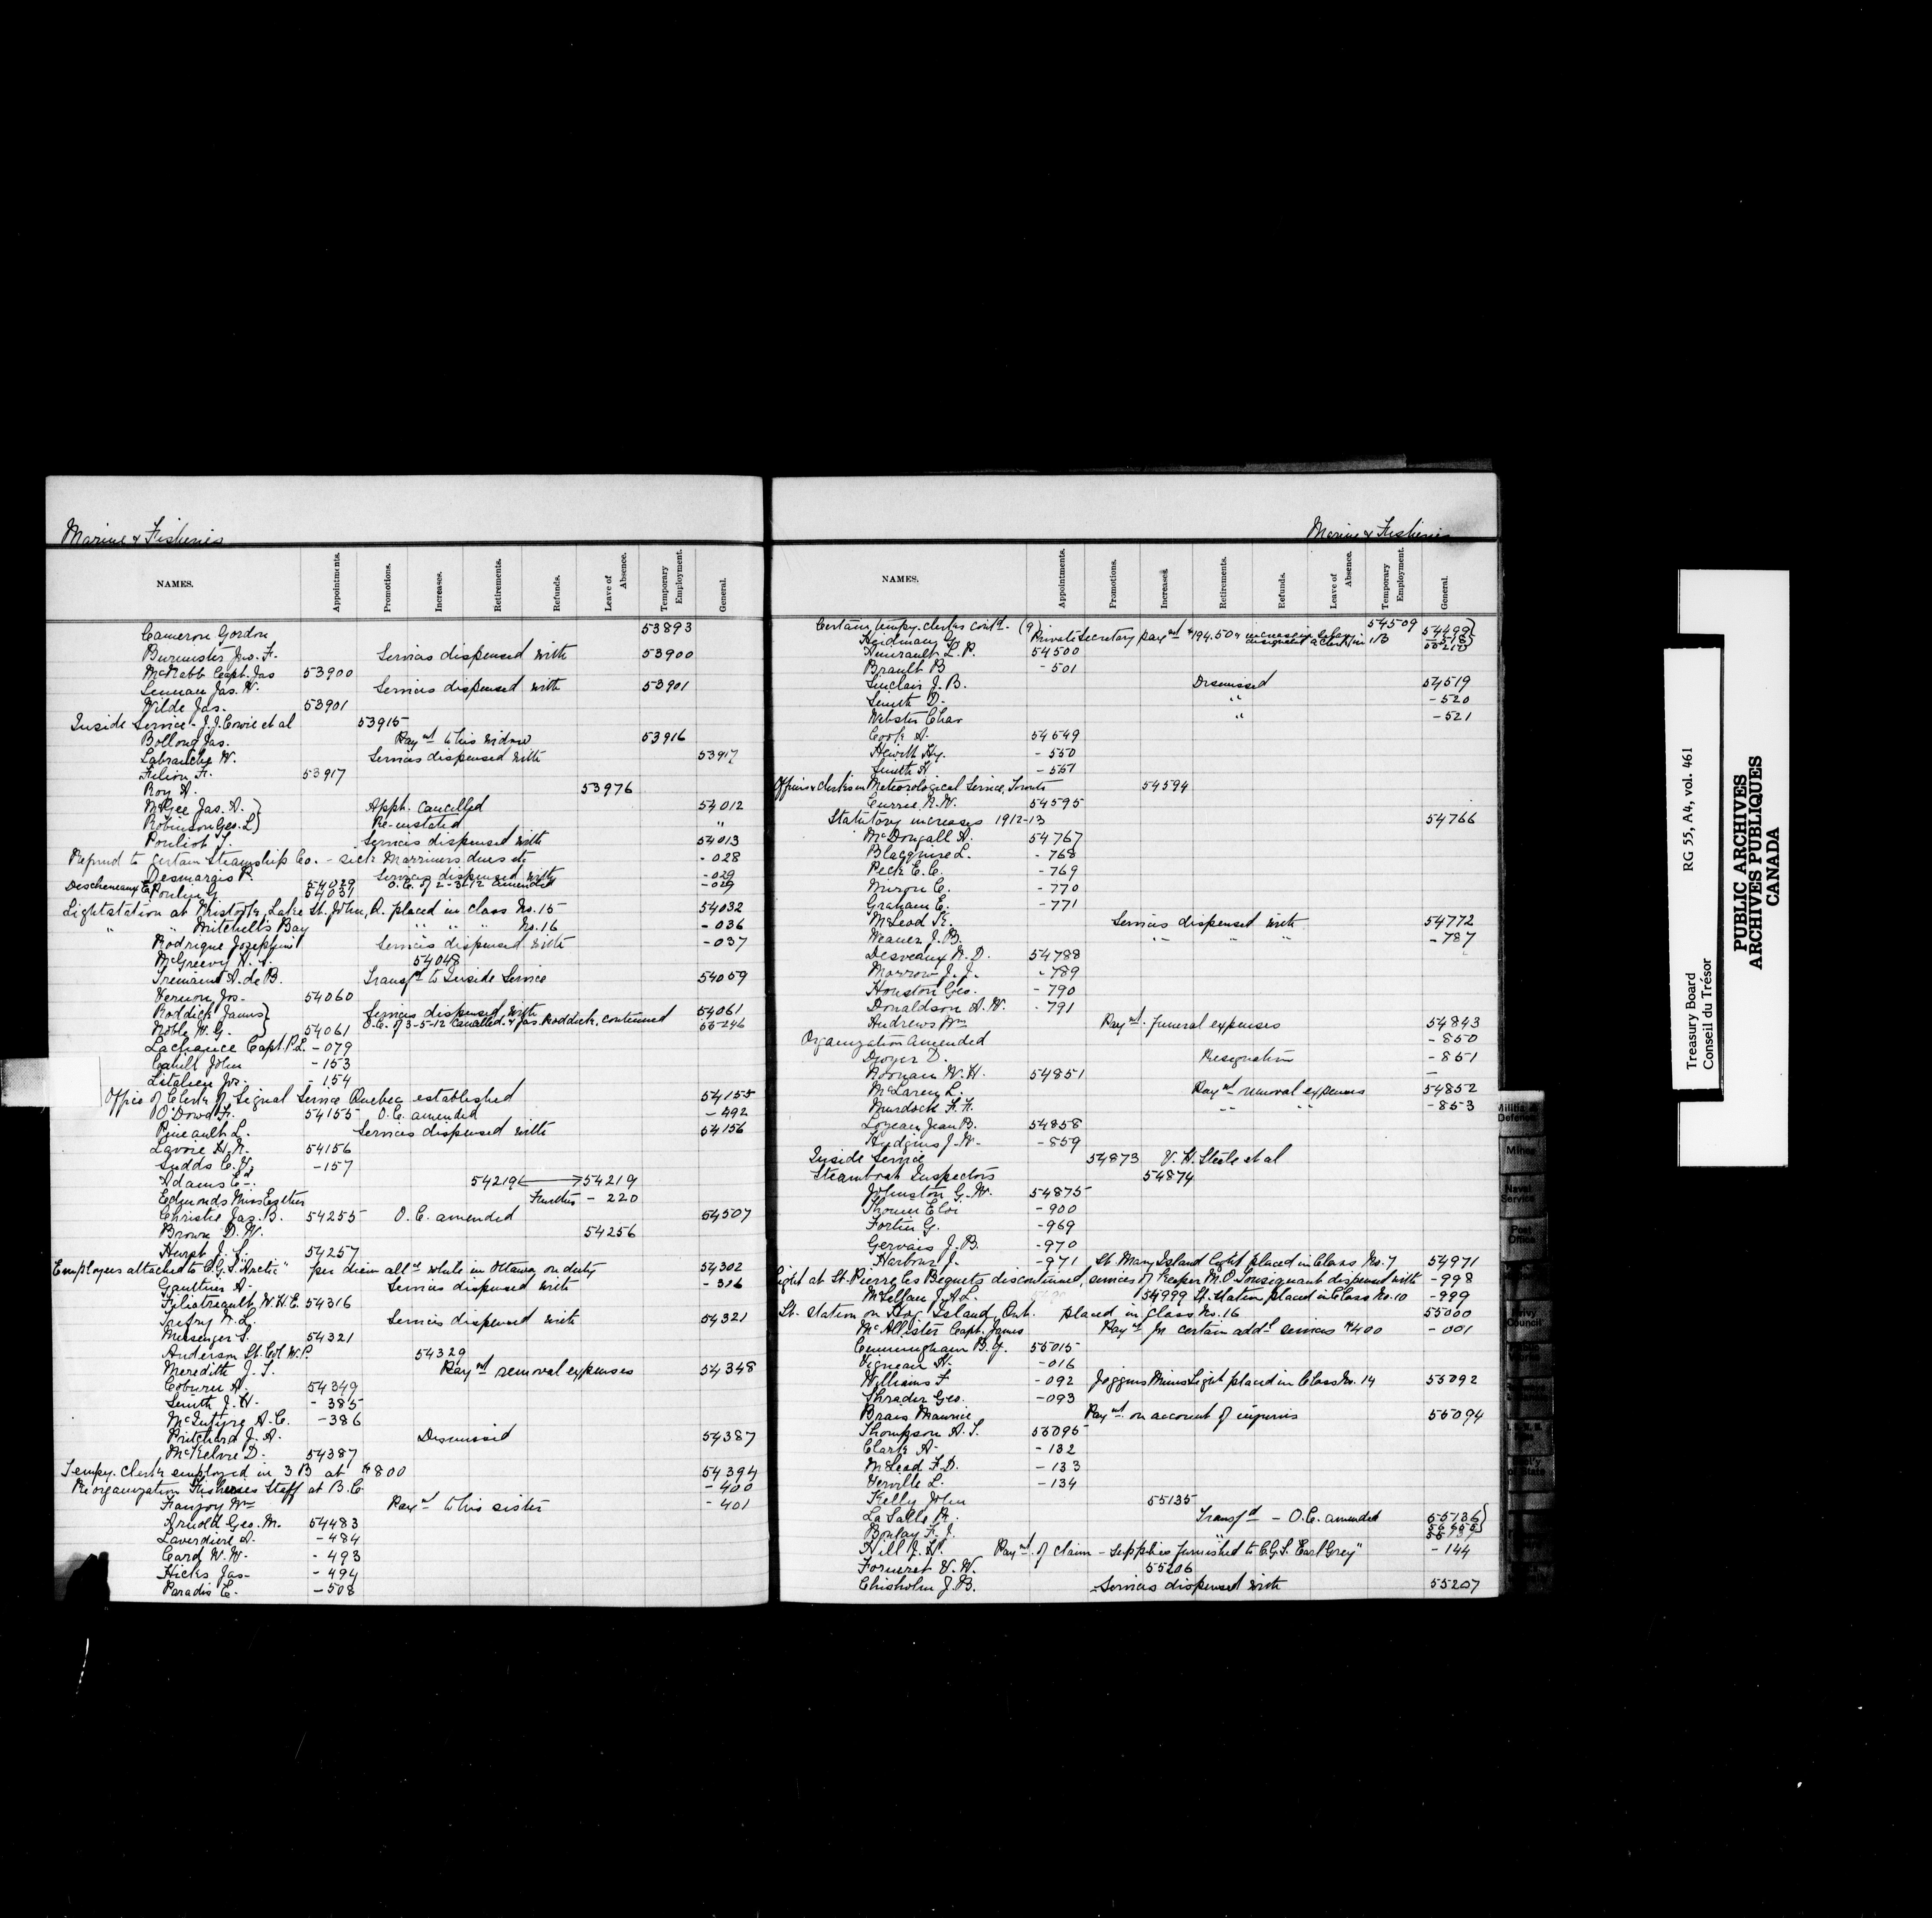 Marine & Fisheries
NAMES. Appointments. Promotions. Increases. Retirements. Refunds. Leave of Absence. Temporary Employment. General.
Cameron Gordon 53893
Burmister Jno. F. Services dispensed with 53900
McNabb Capt. Jas 53900
Lennan Jas. W. Services dispensed with 53901
Wilde Jas. 53901
Inside Service - J.J. Cowie et al 53915
Bollong Jas. Paymt to his widow 53916
Labranche W. Services dispensed with 53917
Filion F. 53917
Roy A. 53976
McGee Jas. A. } Appt. cancelled 54012
Robinson Geo. L } Re-instated "
Pouliot J. Services dispensed with 54013
Refund to certain Steamship Co. - sick Marriners dues etc - 028
Desmarais P. Services dispensed with - 029
Descheneaux E. 54029 O.C. of 2-3-12 amended - 029
Poulin G 54031
Lightstation at Mistook, Lake St. John, Q. placed in class No. 15 54032
" " Mitchell's Bay " " " No. 16 - 036
Rodrigue Josephine Services dispensed with - 037
McGreevy H. J. 54048
Tremaine A. de B. Transfd to Inside Service 54059
Vernon Jos. 54060
Roddick James } Services dispensed with 54061
Noble W. G. } 54061 O.C. of 3-5-12 cancelled & Jas. Roddick, continued 55246
Lachance Capt. P.L. - 079
Cahill John - 153
Litalien Jos. - 154
Office of Clerk of Signal Service Quebec established 54155
O'Dowd F. 54155 O.C. amended - 492
Pineault L. Services dispensed with 54156
Lavoie H. N. 54156
Sudds C. V. - 157
Adams E. 54219 ⟷ 54219
Edmonds Miss Esther Further - 220
Christie Jas. B. 54255 O.C. amended 54507
Brown D. W. 54256
Hurst J. L. 54257
Employees attached to C.G.S. "Arctic" per diem allce while in Ottawa on duty 54302
Gauthier A. Services dispensed with - 316
Filiatreault W.H.E. 54316
Trefry N. L. Services dispensed with 54321
Messenger S. 54321
Anderson Lt. Col W.P. 54329
Meredith J. T. Paymt removal expenses 54348
Coburn A. 54349
Smith J. H. - 385
McIntyre A. C. - 386
Pritchard J. A. Dismissed 54387
McKelvie D. 54387
Tempy. clerk employed in 3 B at $800 54394
Reorganization Fisheries Staff at B.C. - 400
Fanjoy Wm Paymt to his sister - 401
Arnold Geo. M. 54483
Laverdiere A. - 484
Card W. W. - 493
Hicks Jas - 494
Paradis E. - 508
Marine & Fisheries
NAMES. Appointments. Promotions. Increases. Retirements. Refunds. Leave of Absence. Temporary Employment. General.
Certain tempy. clerks contd. (9) 54509 54499 }
Private Secretary paymt $194.50
Henrault L. P. 54500
Brault B - 501
Sinclair J. B. Dismissed 54519
Smith D. " - 520
Webster Chas " - 521
Cook A. 54549
Hewitt Hy. - 550
Smith H - 551
Officers & clerks in Meteorological Service, Toronto 54594
Currie N. W. 54595
Statutory increases 1912-13 54766
McDougall A. 54767
Blacquiere L. - 768
Peck E. C. - 769
Miron C. - 770
Graham E. - 771
McLeod K. Services dispensed with 54772
Weaver J. B. " " " - 787
Desveaux N. D. 54788
Morrow J. J. - 789
Houston Geo. - 790
Donaldson A. W. - 791
Andrews Wm Paymt. funeral expenses 54843
Organization Amended - 850
Doyer D. Resignation - 851
Noonan W. H. 54851
McLaren L. Paymt removal expenses 54852
Murdock F. F. " " - 853
Loyean Jean B. 54858
Hudgins J. W. - 859
Inside Service 54873 V. H. Steele et al
Steamboat Inspectors 54874
Johnston G. W. 54875
Thomer Eloi - 900
Fortin G. - 969
Gervais J. B. - 970
Harbour J. - 971 St. Mary Island Light placed in Class No. 7 54971
Light at St. Pierre les Becquets discontinued, services of Keeper M. O. Tousignant dispensed with - 998
McLellan J. A. L. 54999 Lt. station placed in Class No. 10 - 999
Lt. Station on Hog Island, Ont. placed in Class No. 16 55000
McAllister Capt. James Paymt for certain addl services $400 - 001
Cunningham B. Y. 55015
Vigneau H. - 016
Williams F - 092 Joggins Mines Light placed in Class No. 14 55092
Shrader Geo. - 093
Brais Maurice Paymt. on account of injuries 55094
Thompson A. T. 55095
Clark A. - 132
McLeod F. D. - 133
Verville L. - 134
Kelly John 55135
La Salle R. Transfd - O.C. amended 55136 }
Boulay F. J. "
Hill J. H. Paymt. of claim - supplies furnished to C.G.S. "Earl Grey" - 144
Forneret V. W. 55206
Chisholm J. B. Services dispensed with 55207
Militia & Defence
Mines
Naval Service
Post Office
Privy Council
Treasury Board
Conseil du Trésor
RG 55, A4, vol. 461
PUBLIC ARCHIVES
ARCHIVES PUBLIQUES
CANADA